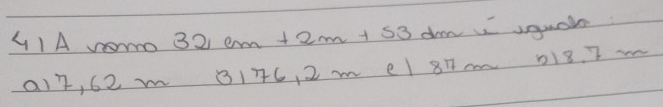 41 A soma 32 cm + 2m + 53 dm é igual
a) 7,62 m B) 76,2 m c) 87 m D) 8.7 m